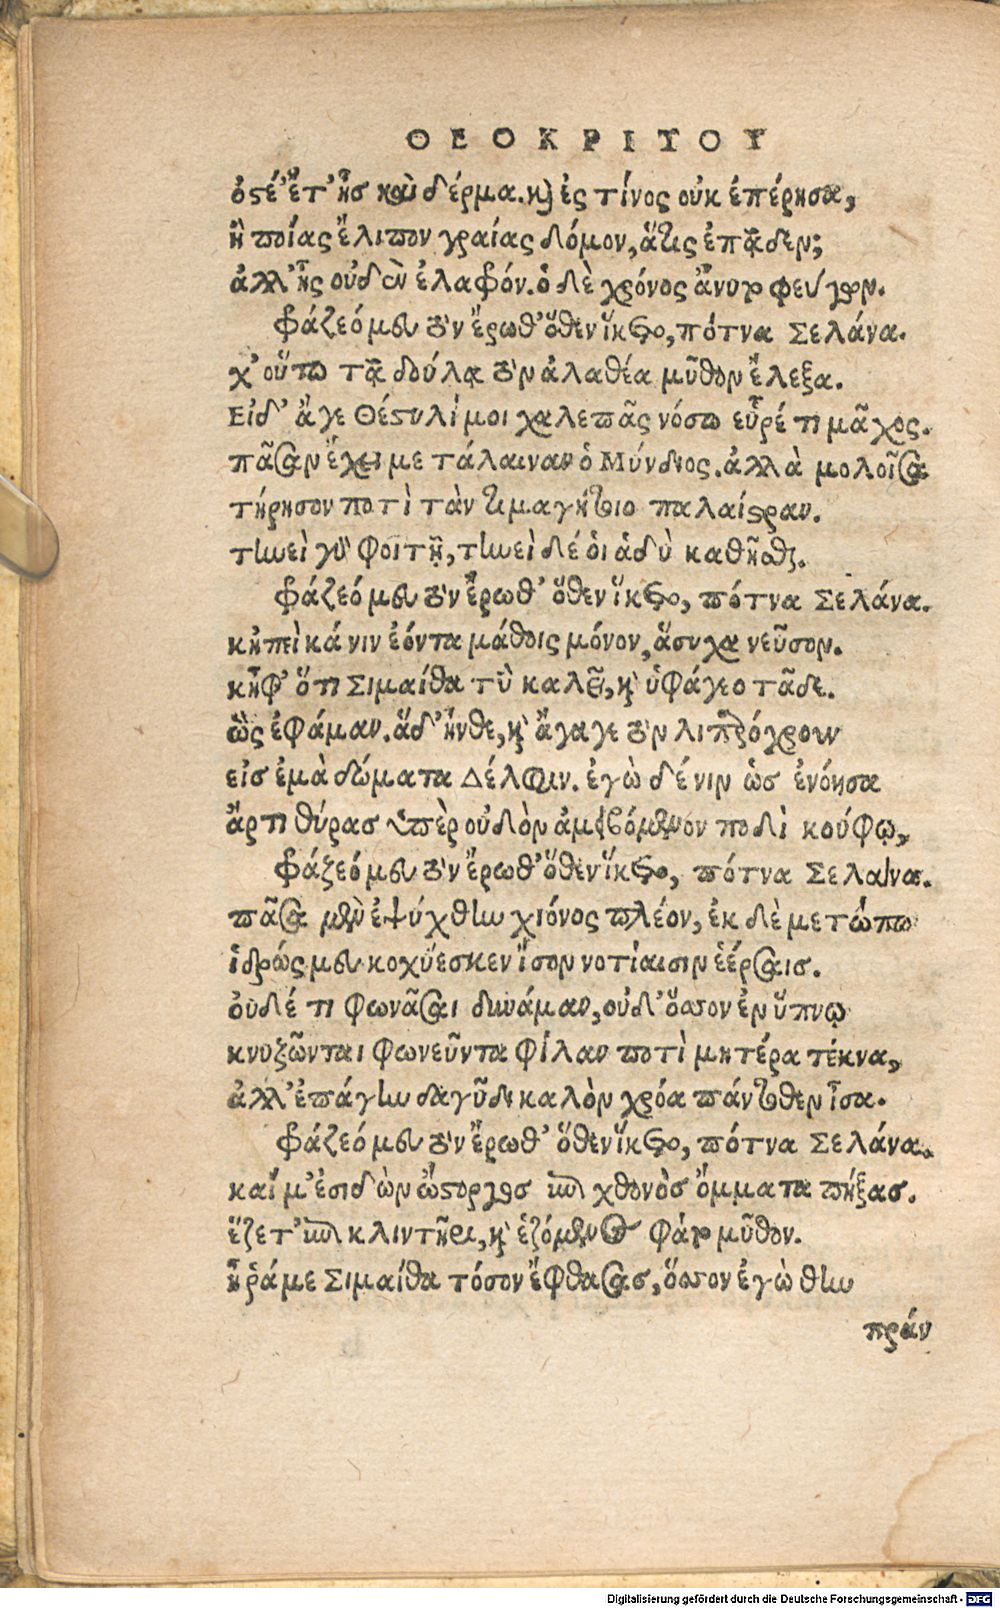 ΘΕΟΚΡΙΤΟΥ
ὀστέ' ἔτ' ἦς καὶ δέρμα. καὶ ἐς τίνος οὐκ ἐπέρησα,
ἢ ποίας ἔλιπον γραίας δόμον, ἅτις ἐπᾷδεν;
ἀλλ' ἦς οὐδὲν ἐλαφρόν. ὁ δὲ χρόνος ἄνυτο φεύγων.
φράζεό μευ τὸν ἔρωθ' ὅθεν ἵκετο, πότνα Σελάνα.
χ' οὕτω τᾷ δούλᾳ τὸν ἀλαθέα μῦθον ἔλεξα.
Εἰδ' ἄγε Θέστυλί μοι χαλεπᾶς νόσω εὗρέ τι μᾶχος.
πᾶσαν ἔχει με τάλαιναν ὁ Μύνδιος. ἀλλὰ μολοῖσα
τήρησον ποτὶ τὰν τιμαγήτοιο παλαίστραν.
τηνεὶ γὰρ φοιτῇ, τηνεὶ δέ οἱ ἁδὺ καθῆσθαι.
φράζεό μευ τὸν ἔρωθ' ὅθεν ἵκετο, πότνα Σελάνα.
κἠπεὶ κά νιν ἐόντα μάθοις μόνον, ἅσυχα νεῦσον.
κἦφ' ὅτι Σιμαίθα τὺ καλεῖ, καὶ ὑφάγεο τᾶδε.
ὣς ἐφάμαν. ἅδ' ἦνθε, καὶ ἄγαγε τὸν λιπαρόχροων
εἰς ἐμὰ δώματα Δέλφιν. ἐγὼ δέ νιν ὡς ἐνόησα
ἄρτι θύρας ὑπὲρ οὐδὸν ἀμειβόμενον ποδὶ κούφῳ,
φράζεό μευ τὸν ἔρωθ' ὅθεν ἵκετο, πότνα Σελάνα.
πᾶσα μὲν ἐψύχθην χιόνος πλέον, ἐκ δὲ μετώπω
ἱδρώς μευ κοχύεσκεν ἴσον νοτίαισιν ἐέρσαις.
οὐδέ τι φωνᾶσαι δυνάμαν, οὐδ' ὅσσον ἐν ὕπνῳ
κνυζῶνται φωνεῦντα φίλαν ποτὶ μητέρα τέκνα,
ἀλλ' ἐπάγην δαγῦδι καλὸν χρόα πάντοθεν ἶσα.
φράζεό μευ τὸν ἔρωθ' ὅθεν ἵκετο, πότνα Σελάνα.
καί μ' ἐσιδὼν ὥστοργος ἐπὶ χθονὸς ὄμματα πήξας.
ἕζετ' ἐπὶ κλιντῆρι, καὶ ἑζόμενος φάτο μῦθον.
ἦ ῥά με Σιμαίθα τόσον ἔφθασας, ὅσσον ἐγὼ θην
πρᾶν
Digitalisierung gefördert durch die Deutsche Forschungsgemeinschaft - DFG